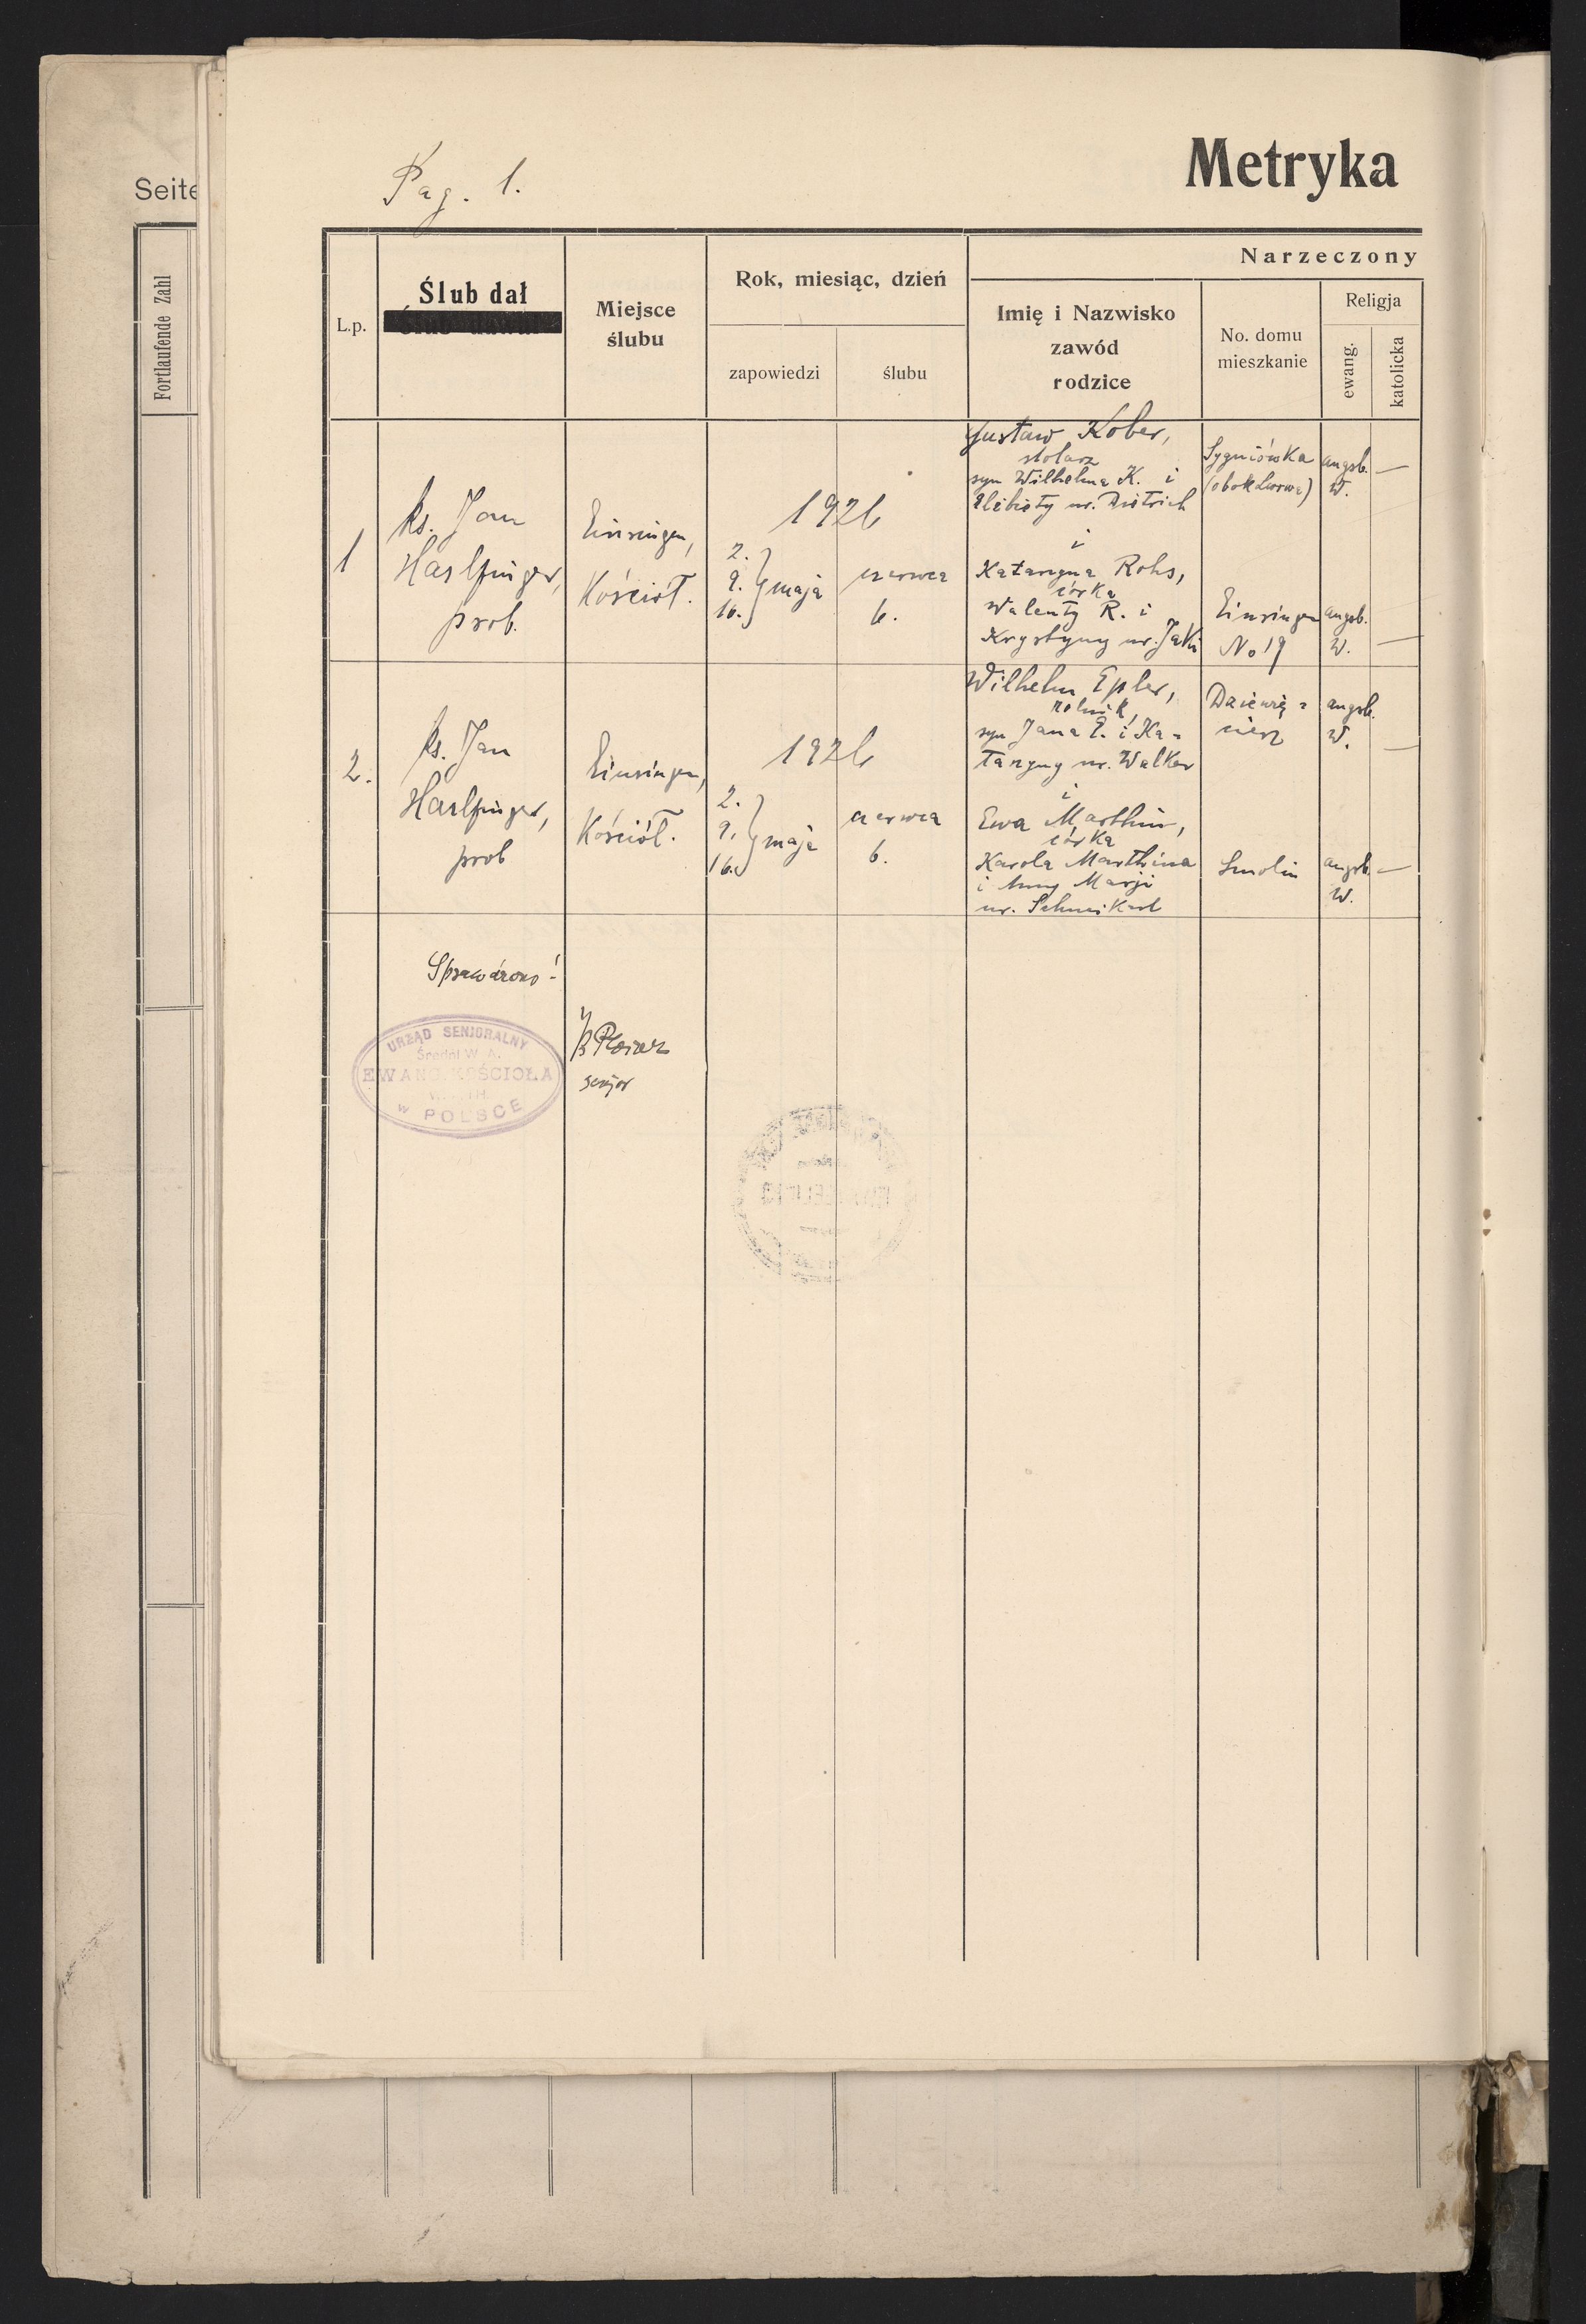 Seite
Fortlaufende Zahl
Pag. 1.
Metryka
L.p.
Ślub dał
Miejsce
ślubu
Rok, miesiąc, dzień
zapowiedzi
ślubu
Narzeczony
Imię i Nazwisko
zawód
rodzice
No. domu
mieszkanie
Religja
ewang.
katolicka
1
ks. Jan
Harlfinger,
prob.
Einsingen,
Kościół.
1926
2.
9. maja
16.
czerwca
6.
Gustaw Kober,
stolarz
syn Wilhelma K. i
Elżbiety ur. Dietrich
i
Katarzyna Rohs,
córka
Walenty R. i
Krystyny ur. Jaki
Sygniówka
(obok Lwowa)
Einsingen
No 19
augsb.
W.
—
augsb.
W.
—
2.
ks. Jan
Harlfinger,
prob
Einsingen,
Kościół.
1926
2.
9. maja
16.
czerwca
6.
Wilhelm Epler,
rolnik,
syn Jana E. i Ka-
tarzyny ur. Walker
i
Ewa Marthin,
córka
Karola Marthina
i Anny Marji
ur. Schweikart
Dziewię-
cierz
Smolin
augsb.
W.
—
augsb.
W.
—
Sprawdzono!
senjor
URZĄD SENJORALNY
Średni W. A.
EWANG. KOŚCIOŁA
W POLSCE